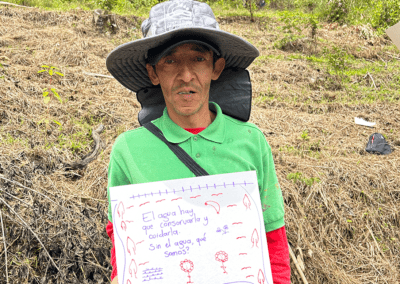 El agua hay
que conservarla y
cuidarla.
Sin el agua, qué
Somos?